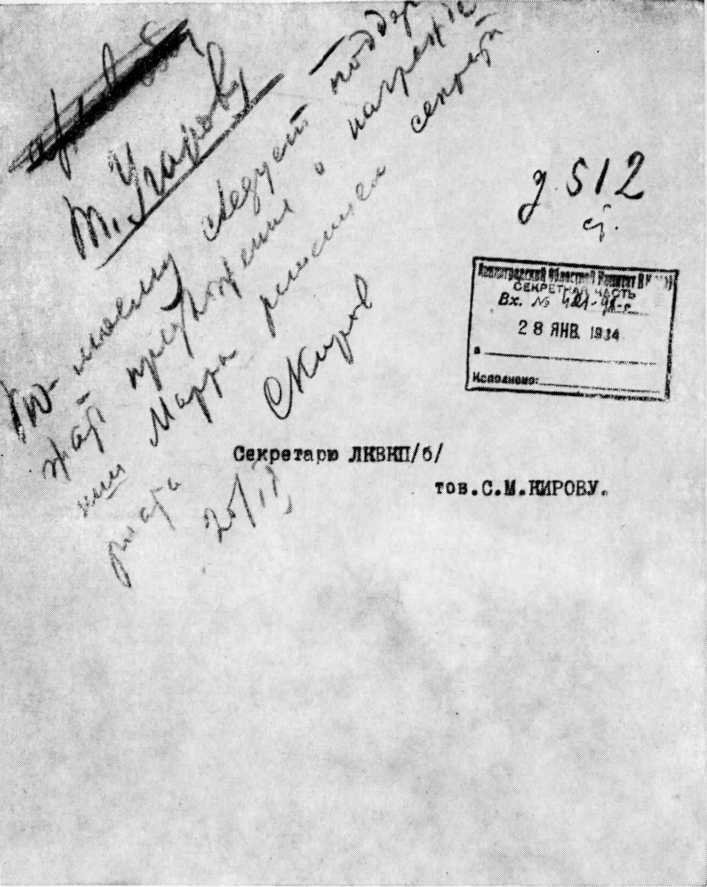 т. Угарову
По-моему следует поддер
жать предложения о награжде
нии Марра решением секрета
риата
СКиров
25/II
512
Ленинградский Областной Комитет ВК
СЕКРЕТНАЯ ЧАСТЬ
Вх. №
28 ЯНВ. 1934
в
Исполнено:
Секретарю ЛКВКП/б/
тов.С.М.КИРОВУ.